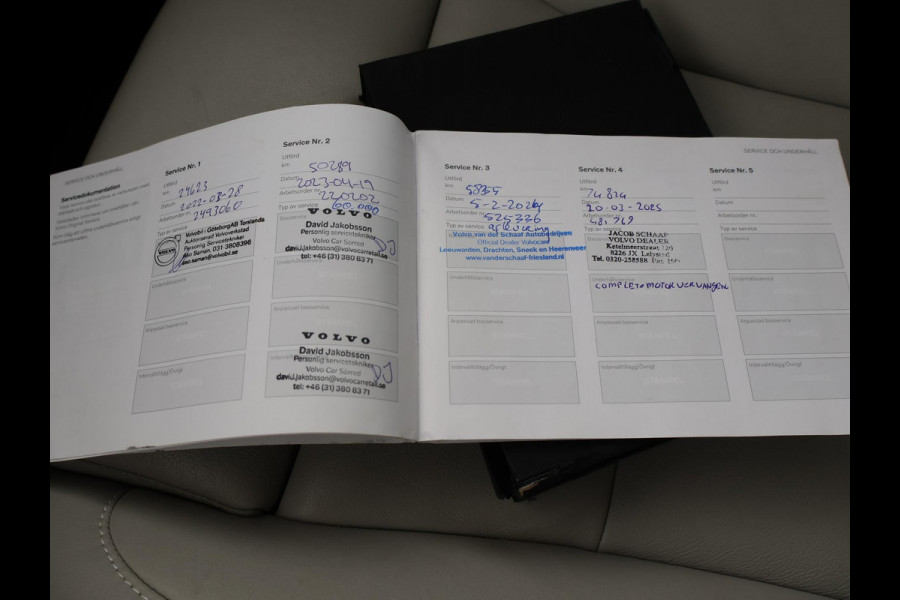 SERVICE OCH UNDERHÅLL
Servicedokumentation
Service Nr. 1
Utförd
km
27623
Datum
2022-03-28
Arbetsorder nr.
2493060
Typ av service
Volvobil i Göteborg AB Torslanda
Auktoriserad Volvoverkstad
Personlig Servicetekniker
VOLVO
Underhållsservice
Anpassad basservice
Intervalltillägg/Övrigt
Service Nr. 2
Utförd
km
50289
Datum
2023-04-19
Arbetsorder nr.
220202
Typ av service
60.000
VOLVO
David Jakobsson
Personlig servicetekniker
Volvo Car Sörred
david.jakobsson@volvocarretail.se
tel: +46 (31) 380 83 71
DJ
Anpassad basservice
VOLVO
David Jakobsson
Personlig servicetekniker
Volvo Car Sörred
david.jakobsson@volvocarretail.se
tel: +46 (31) 380 83 71
DJ
SERVICE OCH UNDERHÅLL
Service Nr. 3
Utförd
km
Datum
5-2-2024
Arbetsorder nr.
525336
Typ av service
aflevering
Volvo van der Schaaf Autobedrijven
Official Dealer Volvocars
Leeuwarden, Drachten, Sneek en Heerenveen
www.vanderschaaf-friesland.nl
Underhållsservice
Anpassad basservice
Intervalltillägg/Övrigt
Service Nr. 4
Utförd
km
74.834
Datum
20-03-2025
Arbetsorder nr.
Typ av service
JACOB SCHAAP
VOLVO DEALER
Ketelmeerstraat 129
8226 JX Lelystad
Tel. 0320-258588
Underhållsservice
COMPLETE MOTOR VERVANGEN
Anpassad basservice
Intervalltillägg/Övrigt
Service Nr. 5
Utförd
km
Datum
Arbetsorder nr.
Typ av service
Basservice
Underhållsservice
Anpassad basservice
Intervalltillägg/Övrigt